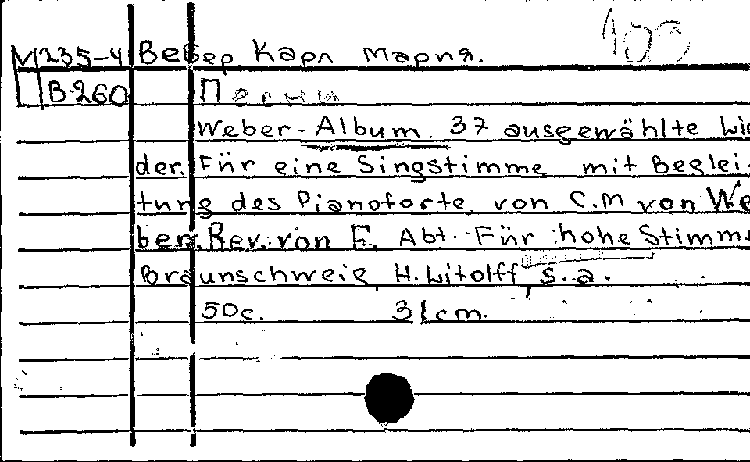 100
М235-4 Вебер Карл Мария.
В-260 Песни
Weber-Album. 37 ausgewählte Lie
der. Für eine Singstimme mit Beglei-
tung des Pianoforte von C.M von We
ber. Rev. von F. Abt. Für hohe Stimm
Braunschweig, H. Litolff, s.a.
50c. 31cm.